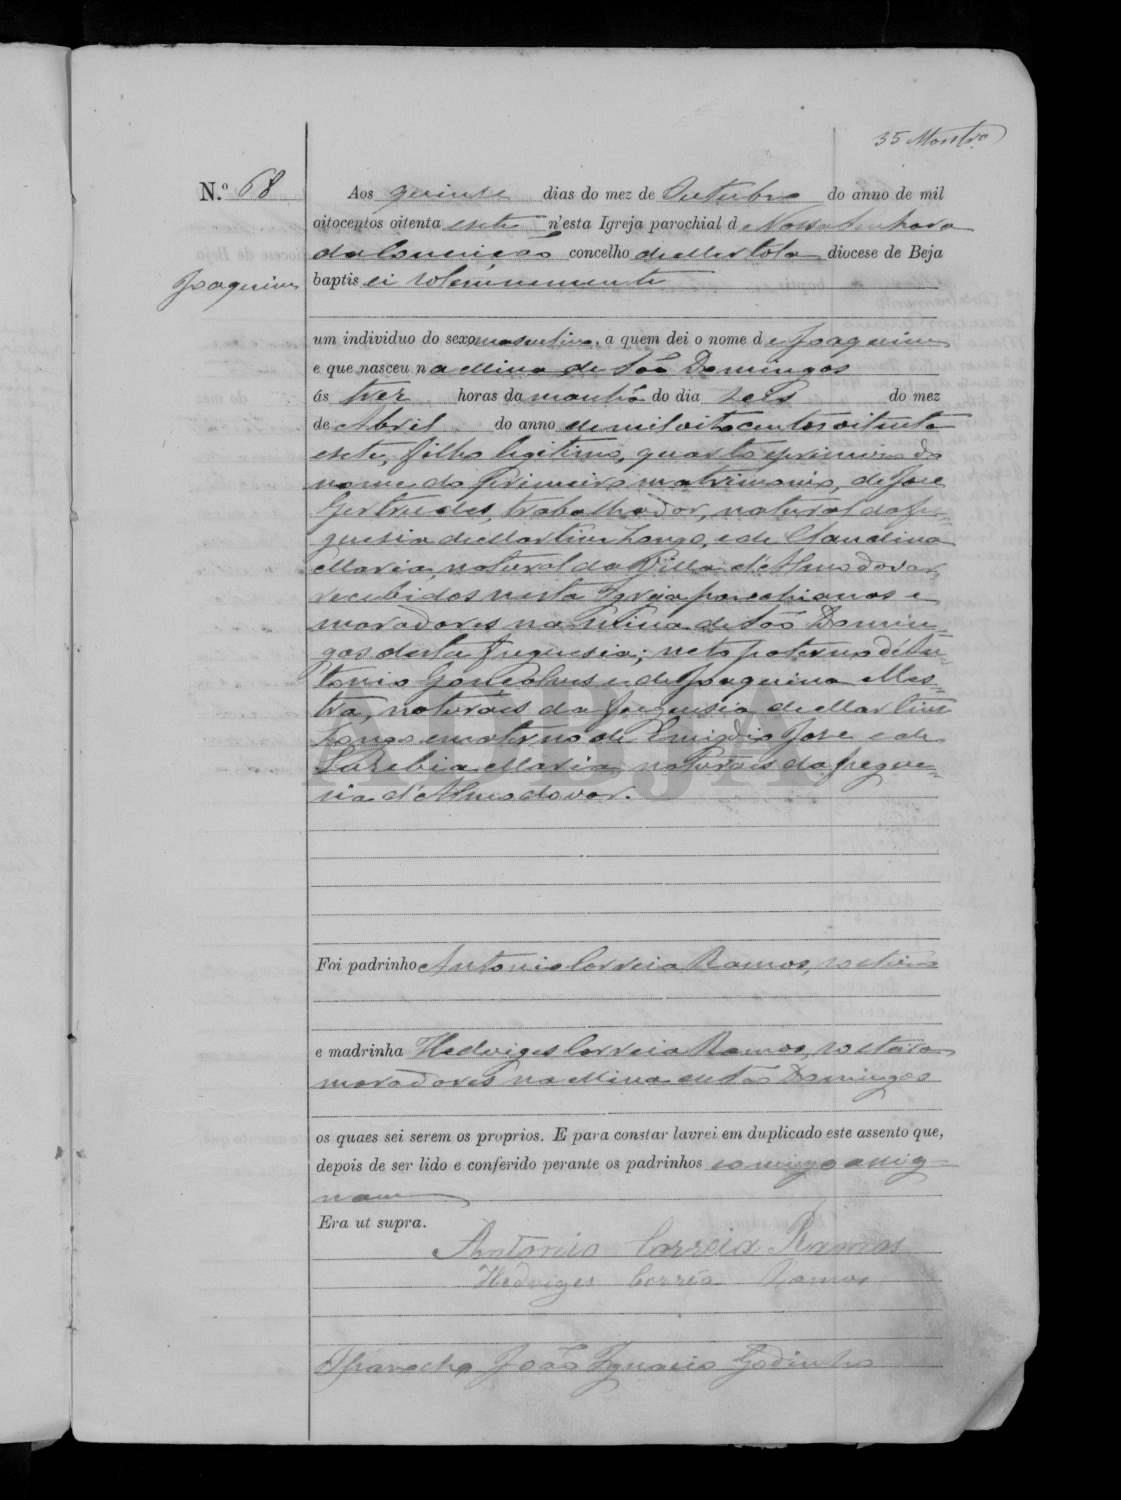 35 Montr.º
N.º 68
Aos quinse dias do mez de Outubro do anno de mil
oitocentos oitenta e sete n'esta Igreja parochial de Nossa Senhora
da Conceição concelho de Mertola diocese de Beja
Joaquim
baptisei solemnemente
um individuo do sexo masculino, a quem dei o nome de Joaquim
e que nasceu na Mina de São Domingos
ás tres horas da manhã do dia seis do mez
de Abril do anno de mil oito centos oitenta
e sete, filho legitimo, quarto e primeiro do
nome do primeiro matrimonio, de José
Gertrudes, trabalhador, natural da fre-
guesia de Martim Longo, e de Claudina
Maria, natural da Villa d'Almodovar,
recebidos nesta Igreja parochianos e
moradores na Mina de São Domin-
gos desta freguesia; neto paterno de An-
tonio Gonçalves e de Joaquina Mes-
tra, naturaes da freguesia de Martim
Longo e materno de Emigdio José e de
Eusebia Maria, naturaes da fregue-
sia d'Almodovar.
Foi padrinho Antonio Correia Ramos, solteiro
e madrinha Hedviges Correia Ramos, solteira
moradores na Mina de São Domingos
os quaes sei serem os proprios. E para constar lavrei em duplicado este assento que,
depois de ser lido e conferido perante os padrinhos comigo assig-
nam
Era ut supra.
Antonio Correia Ramos
Hedviges Corrêa Ramos
O Parocho, João Ignacio Godinho
ADBJA